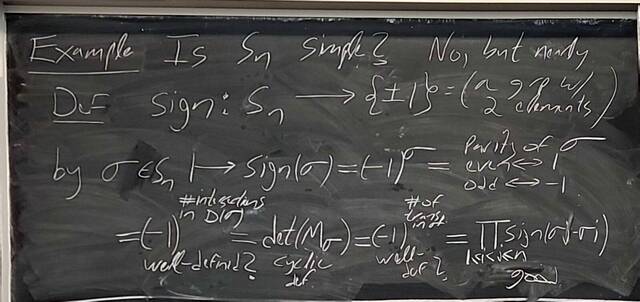 Example Is Sn simple? No, but nearly
Def sign: Sn → {±1} = (a grp w/ 2 elements)
by σ∈Sn ↦ sign(σ) = (-1)^σ = Parity of σ even ↔ 1 odd ↔ -1
= (-1)^{# intersections in D(σ)} = det(Mσ) = (-1)^{# of trans in σ} = ∏ sign(σj-σi)
well-defined? cyclic def. well-def? 1≤i<j≤n
good